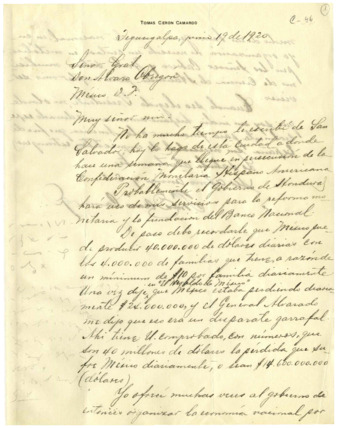 C-46
TOMAS CERON CAMARGO
Tegucigalpa, junio 19 de 1920
Señor Gral.
Don Alvaro Obregon
Mexico D. F.
Muy señor mio:
No ha mucho tiempo le escribi de San
Salvador hoy lo hago de esta ciudad a donde
hace una semana que llegue en prosecucion de la
Confederación Monetaria Hispano Americana
Probablemente el Gobierno de Honduras
hara uso de mis servicios para la reforma mo-
netaria y la fundacion del Banco Nacional
De paso debo recordarle que Mexico pue-
de producir 40.000.000 de dolares diarios con
los 4.000.000 de familias que tiene, a razón de
un minimum de $10 por familia diariamente
en "El Heraldo de Mexico"
Una vez dije, que Mexico estaba perdiendo diaria-
mente $25.000.000, y el General Alvarado
me dijo que eso era un disparate garrafal
Ahi tiene U. comprobado, con números, que
son 40 millones de dólares la perdida que su-
fre Mexico diariamente, o sean $14.600.000.000
(dólares)
Yo ofreci muchas veces al gobierno de
entonces organizar la economia nacional por